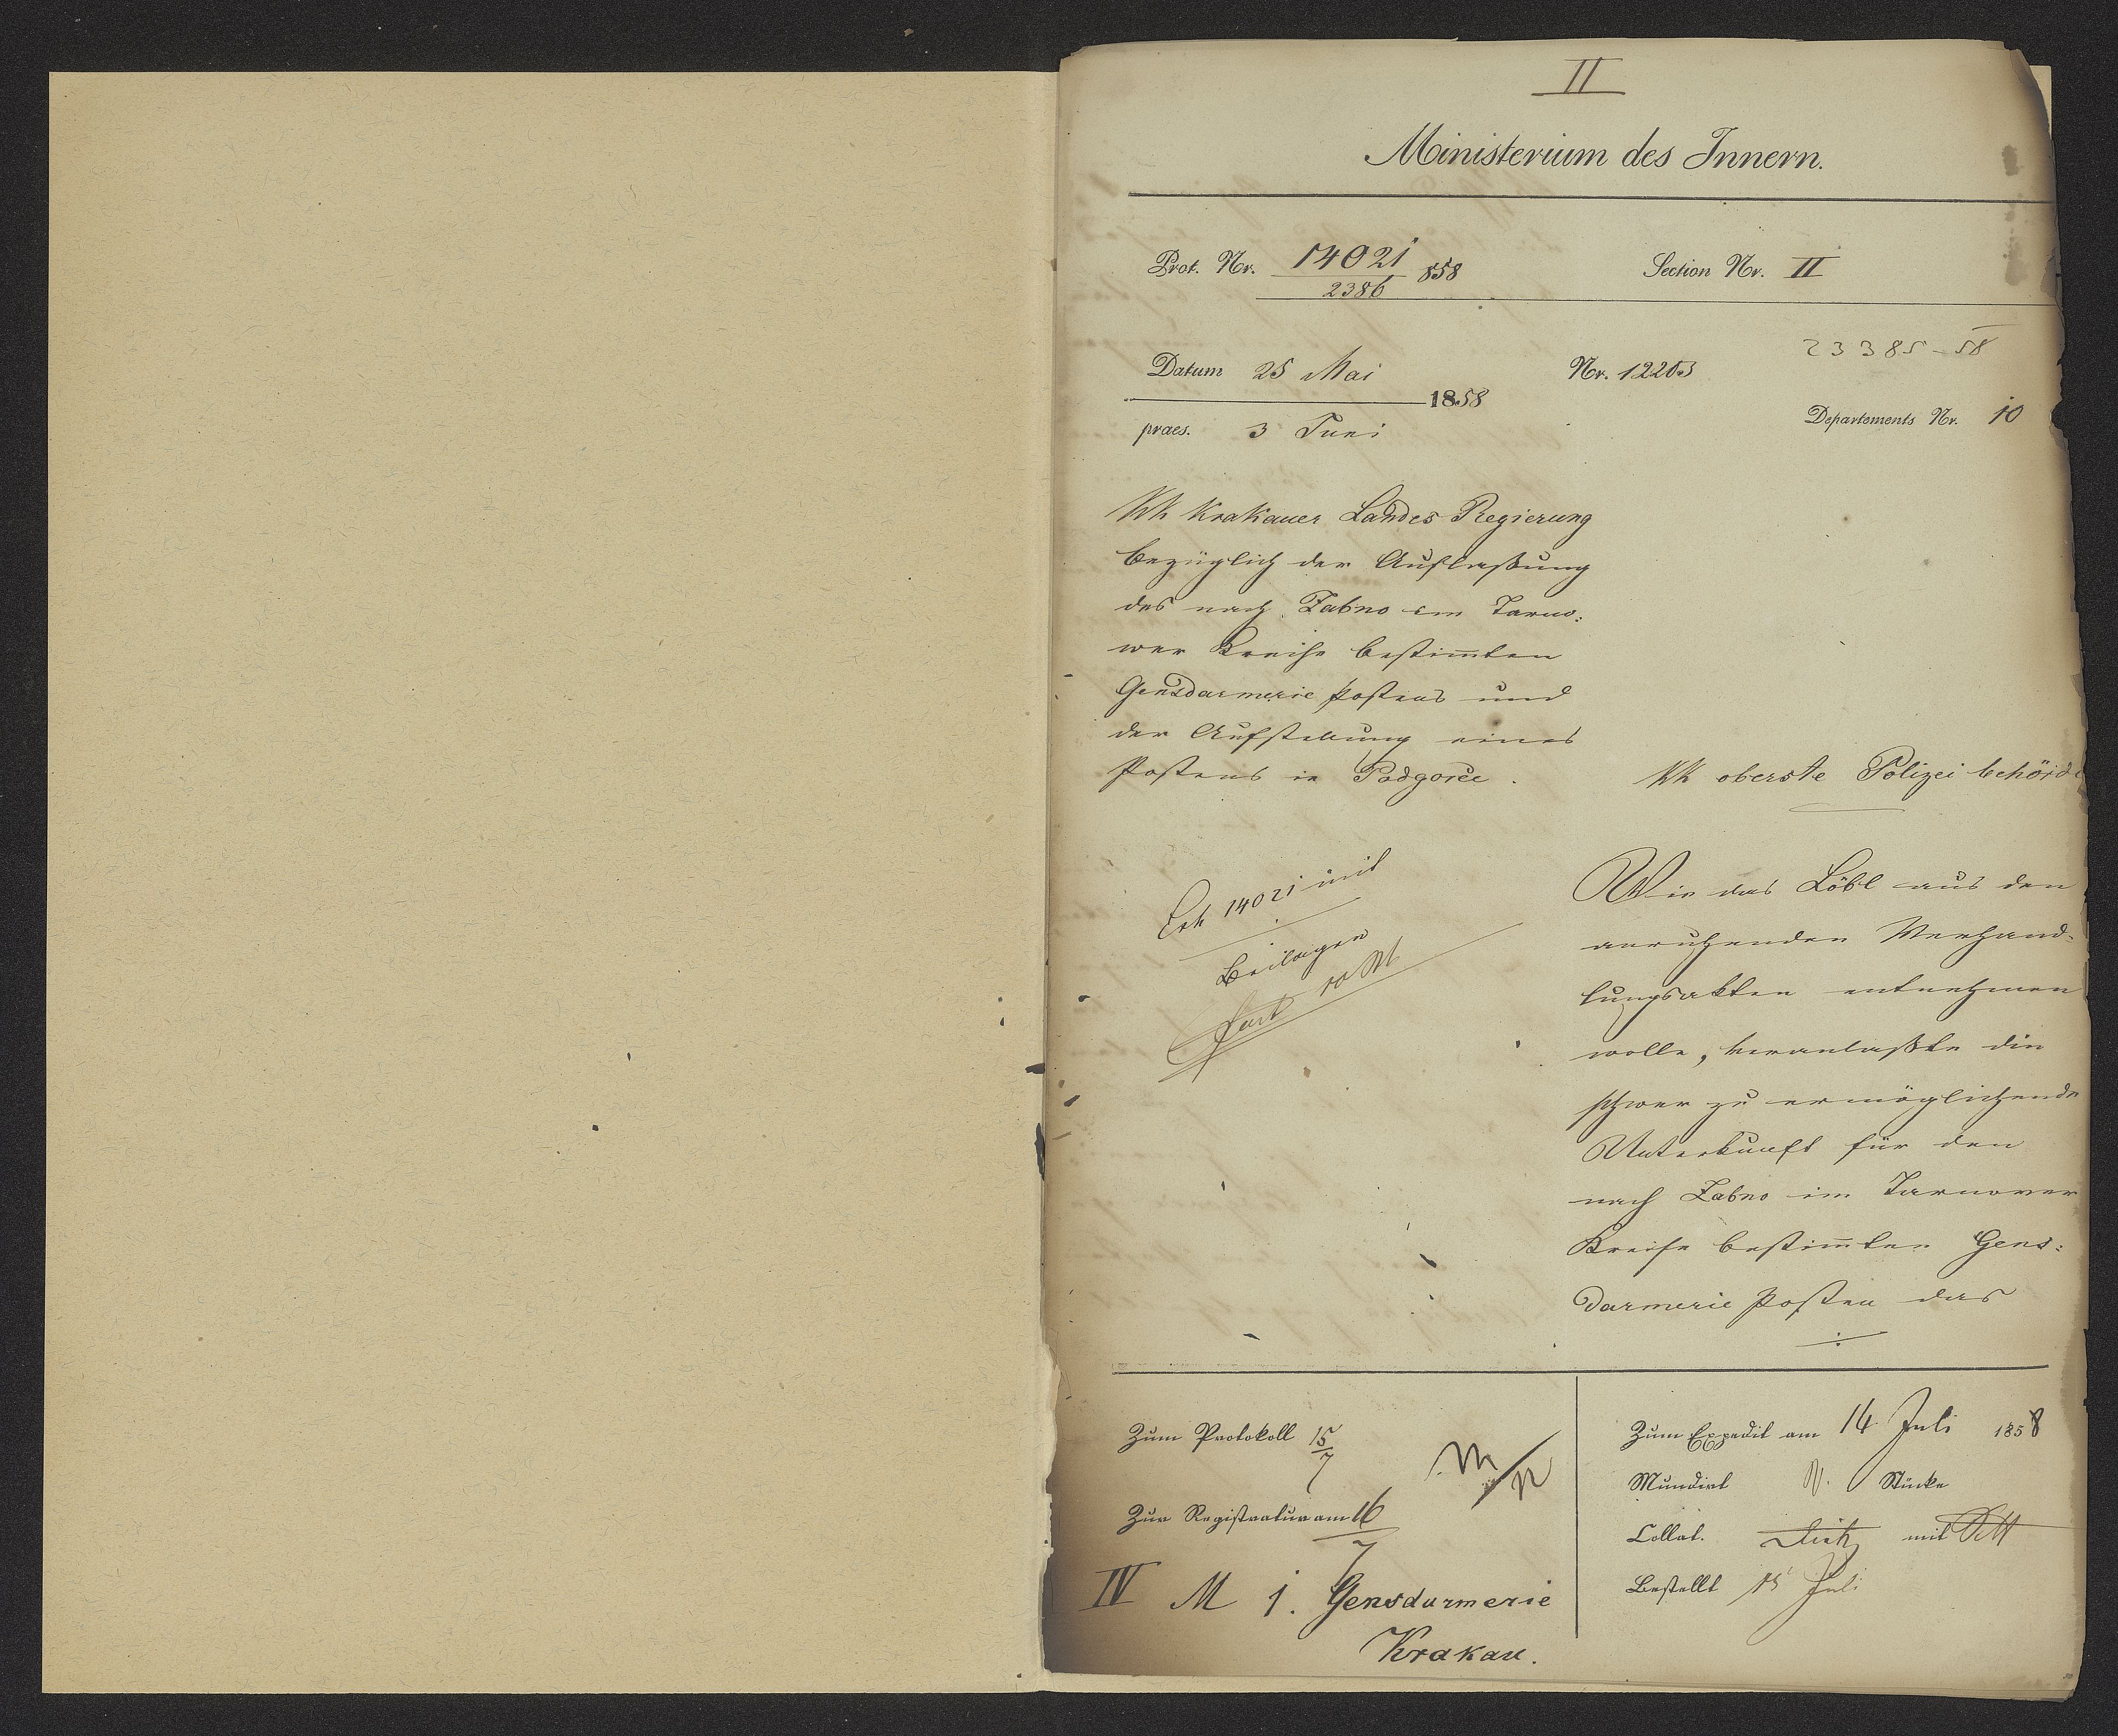 II
Ministerium des Innern.
Prot. Nr. 14021/2386 858
Section Nr. II
23385-58
Datum 25 Mai
1858
praes. 3 Juni
Nr. 12203
Departements Nr. 10
KK Krakauer Landes Regierung
bezüglich der Auflaßung
des nach Zabno im Tarno-
wer Kreise bestimmten
Gensdarmerie Postens und
der Aufstellung eines
Postens in Podgorce.
KK oberste Polizei behörde
14021 mit
Beilagen
Wie das Löbl aus den
anruhenden Verhand-
lungsakten entnehmen
wolle, veranlaßte die
schwer zu ermöglichende
Unterkunft für den
nach Zabno im Tarnower
Kreise bestimmten Gens-
darmerie Posten das
Zum Protokoll 15/7
Zur Registratur am 16/7
IV M 1. Gensdarmerie
Krakau.
Zum Expedit am 14 Juli 1858
Mundirt Stücke
Collat. mit
Bestellt 15 Juli